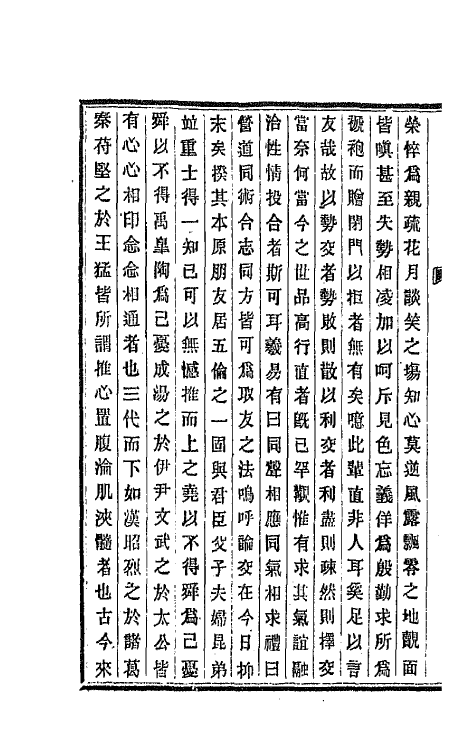 榮悴爲親疏花月談笑之塲知心莫逆風露飄零之地覿面
皆嗔甚至失勢相凌加以呵斥見色忘義佯爲殷勤求所爲
袍而贈閉門以拒者無有矣噫此輩直非人耳奚足以言
友哉故以勢交者勢敗則散以利交者利盡則疎然則擇交
當奈何當今之世品高行直者旣已罕觀惟有求其氣誼融
洽性情投合者斯可耳羲易有曰同聲相應同氣相求禮曰
營道同術合志同方皆可爲取友之法嗚呼論交在今日抑
末矣揆其本原朋友居五倫之一固與君臣父子夫婦昆弟
竝重士得一知己可以無憾推而上之堯以不得舜爲己憂
舜以不得禹臯陶爲己憂成湯之於伊尹文武之於太公皆
有心心相印念念相通者也三代而下如漢昭烈之於諸葛
秦苻堅之於王猛皆所謂推心置腹淪肌浹髓者也古今來